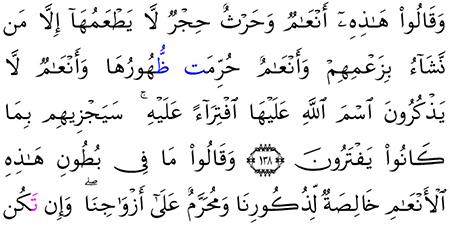 وَقَالُوا۟ هَـٰذِهِۦٓ أَنْعَـٰمٌ وَحَرْثٌ حِجْرٌ لَّا يَطْعَمُهَآ إِلَّا مَن
نَّشَآءُ بِزَعْمِهِمْ وَأَنْعَـٰمٌ حُرِّمَت ظُّهُورُهَا وَأَنْعَـٰمٌ لَّا
يَذْكُرُونَ ٱسْمَ ٱللَّهِ عَلَيْهَا ٱفْتِرَآءً عَلَيْهِ ۚ سَيَجْزِيهِم بِمَا
كَانُوا۟ يَفْتَرُونَ ١٣٨ وَقَالُوا۟ مَا فِى بُطُونِ هَـٰذِهِ
ٱلْأَنْعَـٰمِ خَالِصَةٌ لِّذُكُورِنَا وَمُحَرَّمٌ عَلَىٰٓ أَزْوَٰجِنَا ۖ وَإِن تَكُن